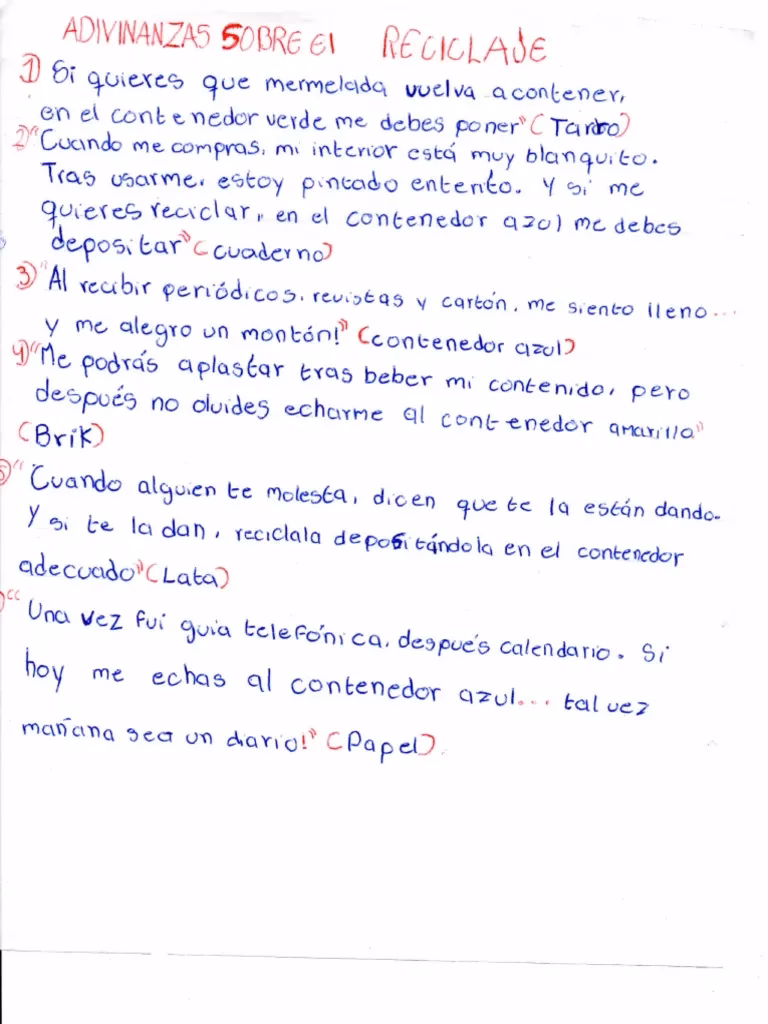 ADIVINANZAS SOBRE El RECICLAJE
1) Si quieres que mermelada vuelva a contener,
en el contenedor verde me debes poner" (Tarro)
2) "Cuando me compras, mi interior está muy blanquito.
Tras usarme, estoy pintado entento. Y si me
quieres reciclar, en el contenedor azul me debes
depositar" (cuaderno)
3) "Al recibir periódicos, revistas y cartón, me siento lleno...
y me alegro un montón!" (contenedor azul)
4) "Me podrás aplastar tras beber mi contenido, pero
después no olvides echarme al contenedor amarillo"
(Brik)
5) "Cuando alguien te molesta, dicen que te la están dando.
Y si te la dan, reciclala depositándola en el contenedor
adecuado" (Lata)
) "Una vez fui guia telefónica, después calendario. Si
hoy me echas al contenedor azul... tal vez
mañana sea un diario!" (Papel).